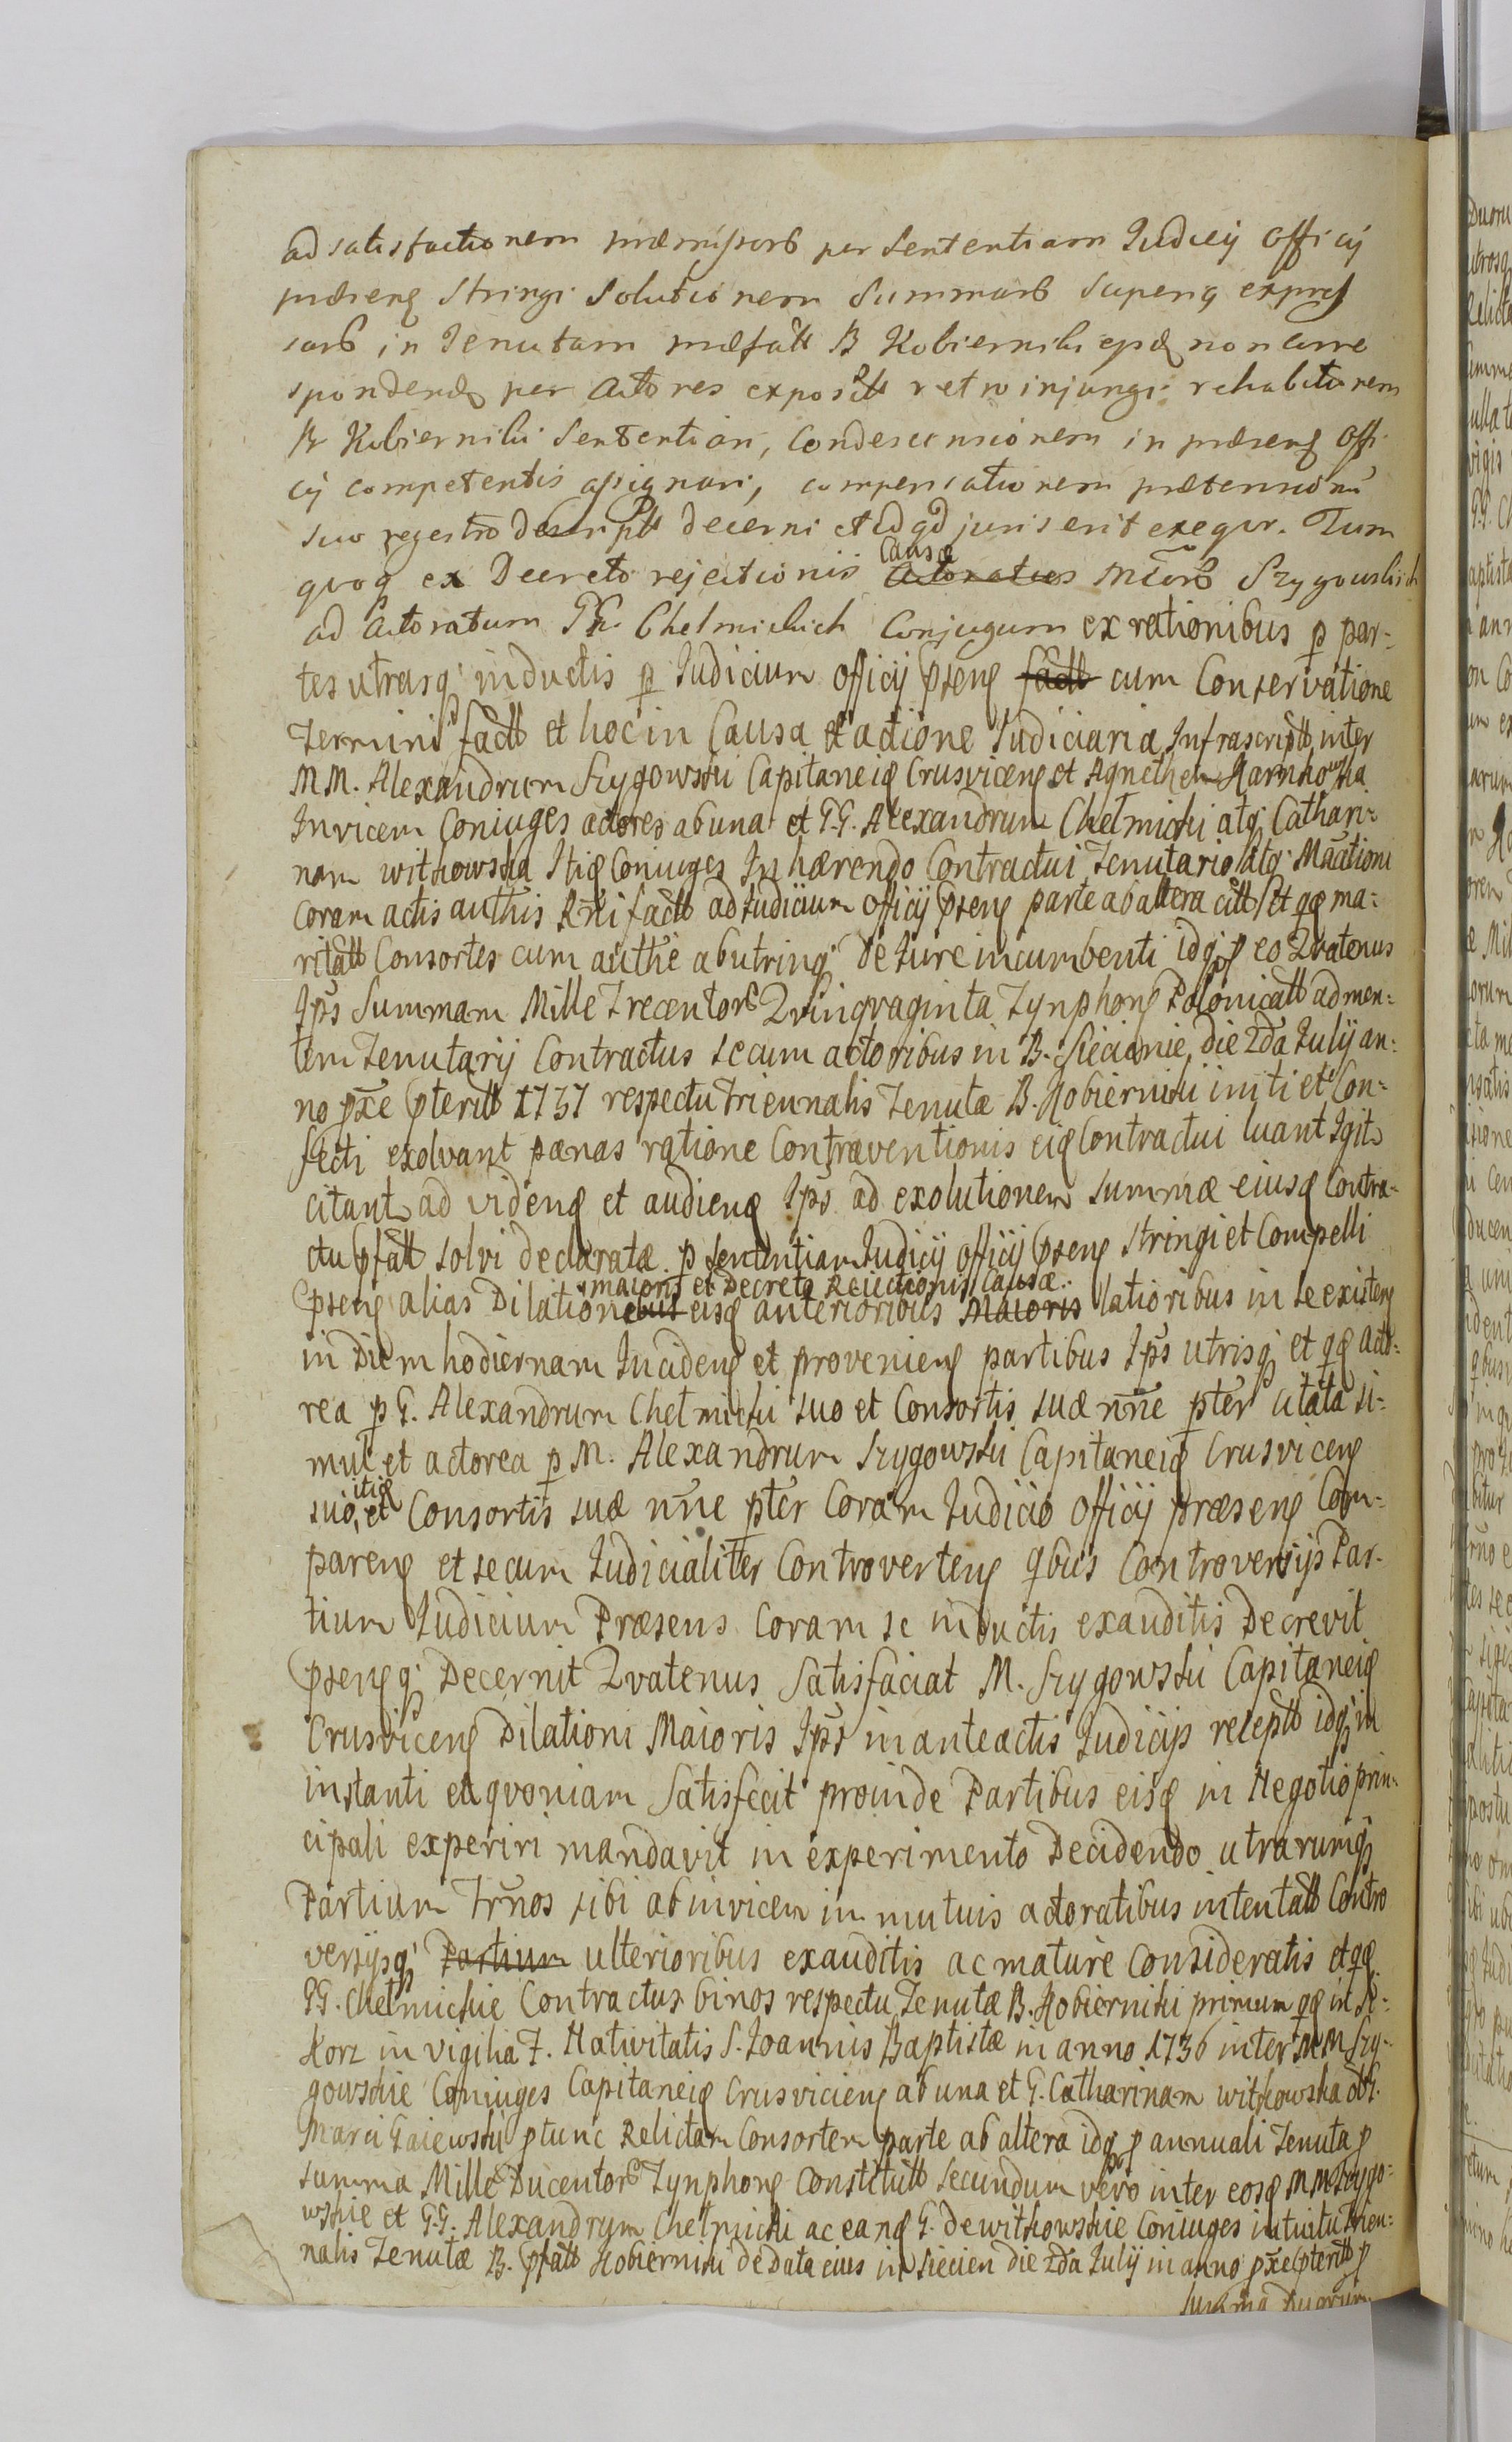 ad satisfactionem præmissorb per Sententiam Judicij Officij
præseng Stringi Solutionem Summarb Superig express
sarb in Tenutam præfatt B Kobierniki epd non corre
spondend per Actores exposittt retro injungi rehabitionem
B Kobierniki Sententiari, Condescensionem in præseng Offi
cij competentis assignari, compensationem prætensionũ
suo regestro descriptt decerni et id qd juris erit exeqvr. Tum
qvoq ex Decreto rejectionis Causæ Actoratus Mcorb Szygowskich
ad Actoratum GG. Chelmickich Conjugum ex rationibus p par-
tes utrasq inductis p Judicium officij pseng factt cum Conservatione
Termini factt et hoc in Causa et actione Judiciaria Infrascriptt inter
MM. Alexandrum Szygowski Capitaneid Crusviceng et Agnethem Karnkowska
Invicem Coniuges actores ab una et G.G. Alexandrum Chelmicki atq Cathari-
nam withowska Itid Coniuges Inhærendo Contractui Tenutario atq Mactioni
Coram actis authis Rñi factt ad Judicium Officij pseng parte ab altera citt Et qd ma-
ritatt Consortes cum authe ab utrinq de Jure incumbenti idq p eo Qvatenus
Ips Summam Mille Trecentorb Qvinqvaginta Tynphong Polonicatt ad men-
tem Tenutarij Contractus secum actoribus in B. Siecienie die 2da Julij an-
no pxe pteritt 1737 respectu triennalis Tenutæ B. Kobierniki initi et Con-
fecti exolvant pænas ratione Contraventionis eid Contractui luant Igitr
citantr ad videnđ et audienđ Ips ad exolutionem summæ eiusd Contra-
ctu pfatt solvi declaratæ p Sententiam Judicij officij pseng Stringi et Compelli
maioris et Decreto Reiectionis Causæ
pseng alias Dilationebus eisd anterioribus Maioris latioribus in se existeng
in Diem hodiernam Incideng et provenieng partibus Ips utrisq et qd acto-
rea p G. Alexandrum Chelmicki suo et Consortis suæ nñe pter citata si-
mul et actorea p M. Alexandrum Szygowski Capitaneid Crusviceng
suo, itid et Consortis suæ nñe pter Coram Judicio Officij præseng Com-
pareng et secum Judicialiter Controverteng qbus Controversijs Par-
tium Judicium Præsens Coram se inductis exauditis Decrevit
psengq Decernit Qvatenus Satisfaciat M. Szygowski Capitaneid
Crusviceng Dilationi Maioris Ips in anteactis Judicijs receptt idq in
instanti et qvoniam Satisfecit proinde Partibus eisd in Negotio prin-
cipali experiri mandavit in experimento Decidendo utrarumq
Partium Trnos sibi ab invicem in mutuis actoratibus intentatt Contro
versijsq Partium ulterioribus exauditis ac mature Consideratis et qd
GG. Chelmickie Contractus binos respectu Tenutæ B. Kobierniki primum qd in Si-
korz in vigilia F. Nativitatis S. Joannis Baptistæ in anno 1736 inter MM Szy-
gowskie Coniuges Capitaneid Crusvicieng ab una et G. Catharinam withowska
Marci Gaiewski ptunc Relictam Consortem parte ab altera idq p annuali Tenuta p
summa Mille Ducentorb Tynphong Constitutt Secundum vero inter eosd MM Szygo-
wskie et G.G. Alexandrum Chelmicki ac eand G. de withowskie Coniuges intuitu Trien-
nalis Tenutæ B. pfatt Kobierniki de Data eius in Siecien die 2da Julij in anno pxe pteritt p
Summa Duorum